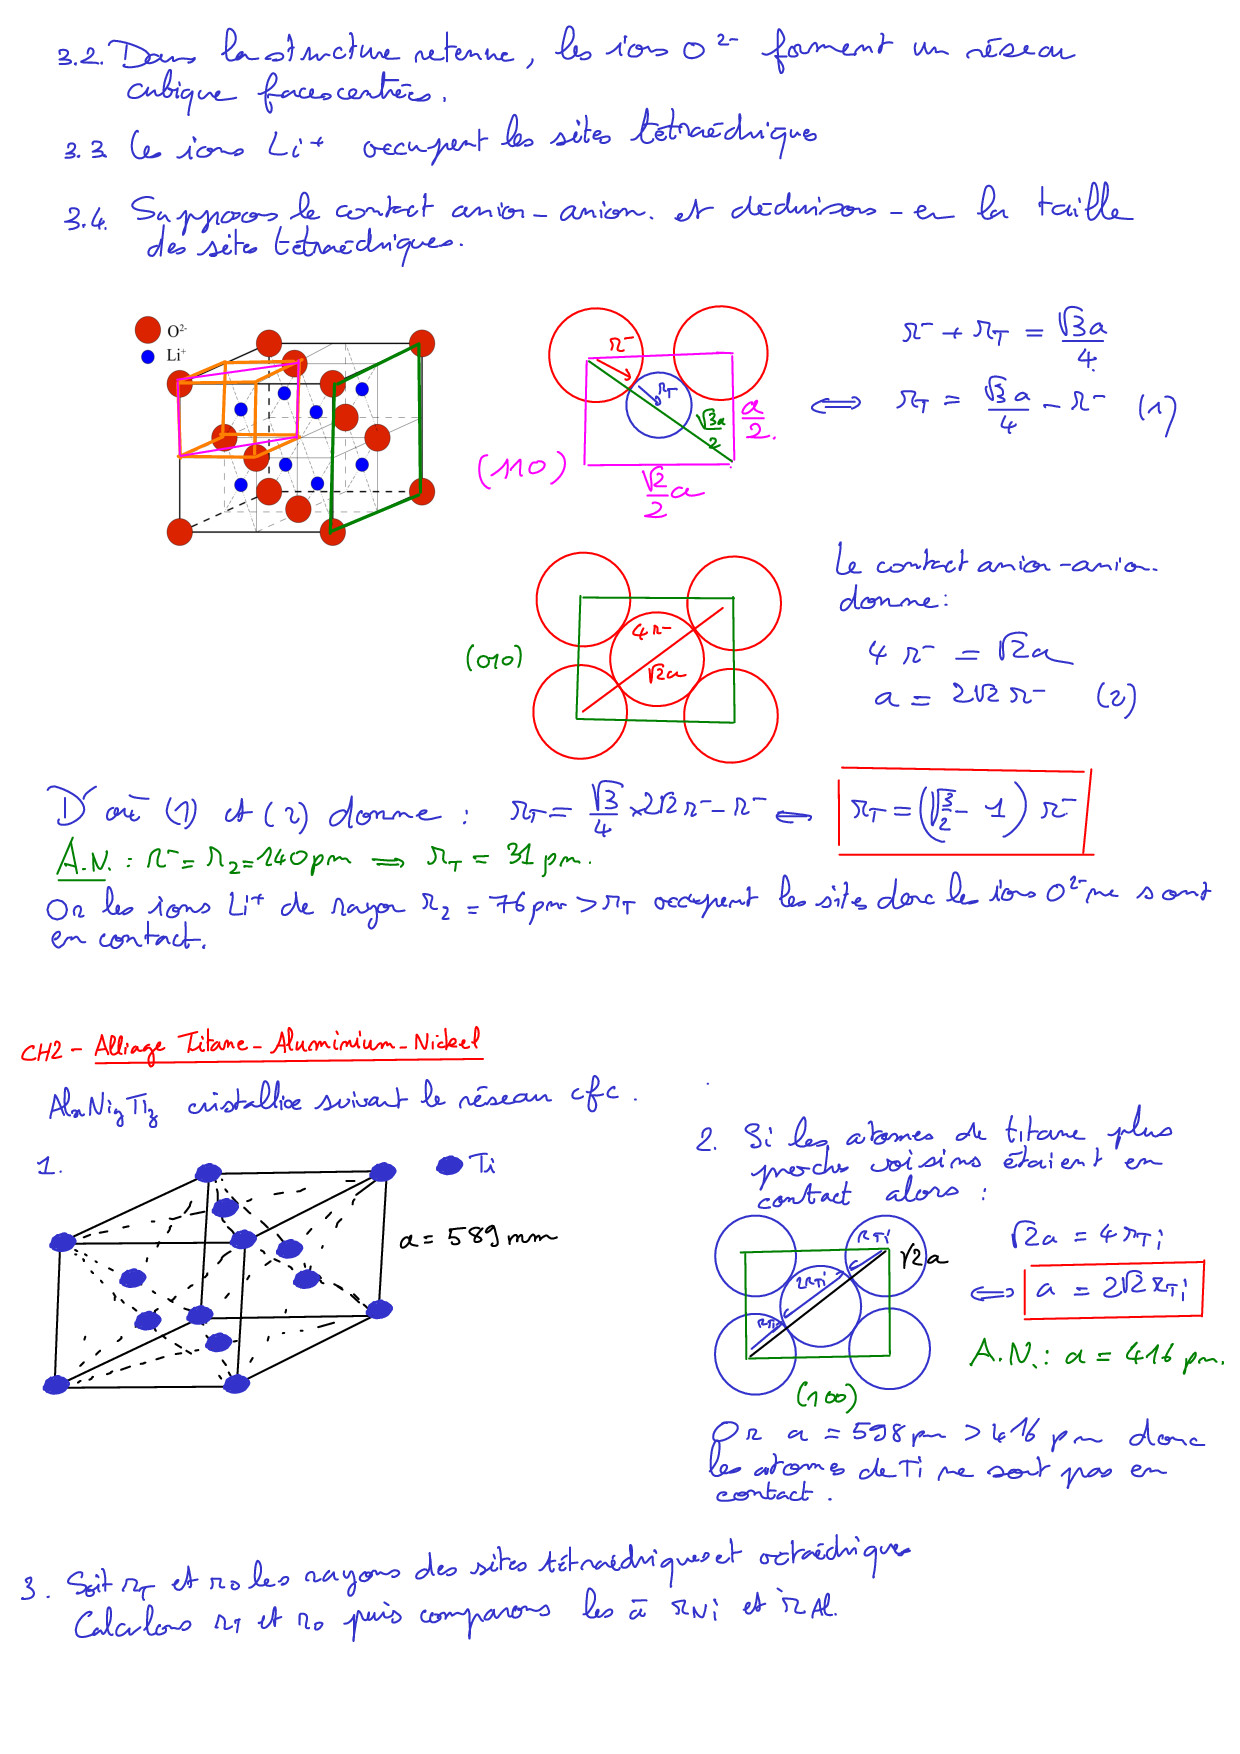 3.2. Dans la structure retenue, les ions O²⁻ forment un réseau
cubique faces centrées.
3.3. Les ions Li⁺ occupent les sites tétraédriques
3.4. Supposons le contact anion-anion. et déduisons-en la taille
des sites tétraédriques.
O²⁻
Li⁺
r⁻
r_T
√3a/2
a/2.
(110)
√2/2 a
r⁻ + r_T = √3a/4.
⟺ r_T = √3a/4 - r⁻ (1)
(010)
4r⁻
√2a
Le contact anion-anion.
donne:
4r⁻ = √2a
a = 2√2 r⁻ (2)
D'où (1) et (2) donne : r_T = √3/4 × 2√2 r⁻ - r⁻ ⟺ r_T = (√(3/2) - 1) r⁻
A.N. : r⁻ = r₂ = 140 pm ⟹ r_T = 31 pm.
Or les ions Li⁺ de rayon r₂ = 76 pm > r_T occupent les sites donc les ions O²⁻ ne sont
en contact.
CH2 - Alliage Titane - Aluminium - Nickel
AlₓNi_yTi_z cristallise suivant le réseau cfc.
1.
Ti
a = 589 mm
2. Si les atomes de titane plus
proches voisins étaient en
contact alors :
r_Ti
2r_Ti
r_Ti
√2a
(100)
√2a = 4r_Ti
⟺ a = 2√2 r_Ti
A.N. : a = 416 pm.
Or a = 598 pm > 416 pm donc
les atomes de Ti ne sont pas en
contact.
3. Soit r_T et r_O les rayons des sites tétraédriques et octaédriques
Calculons r_T et r_O puis comparons les à r_Ni et r_Al.